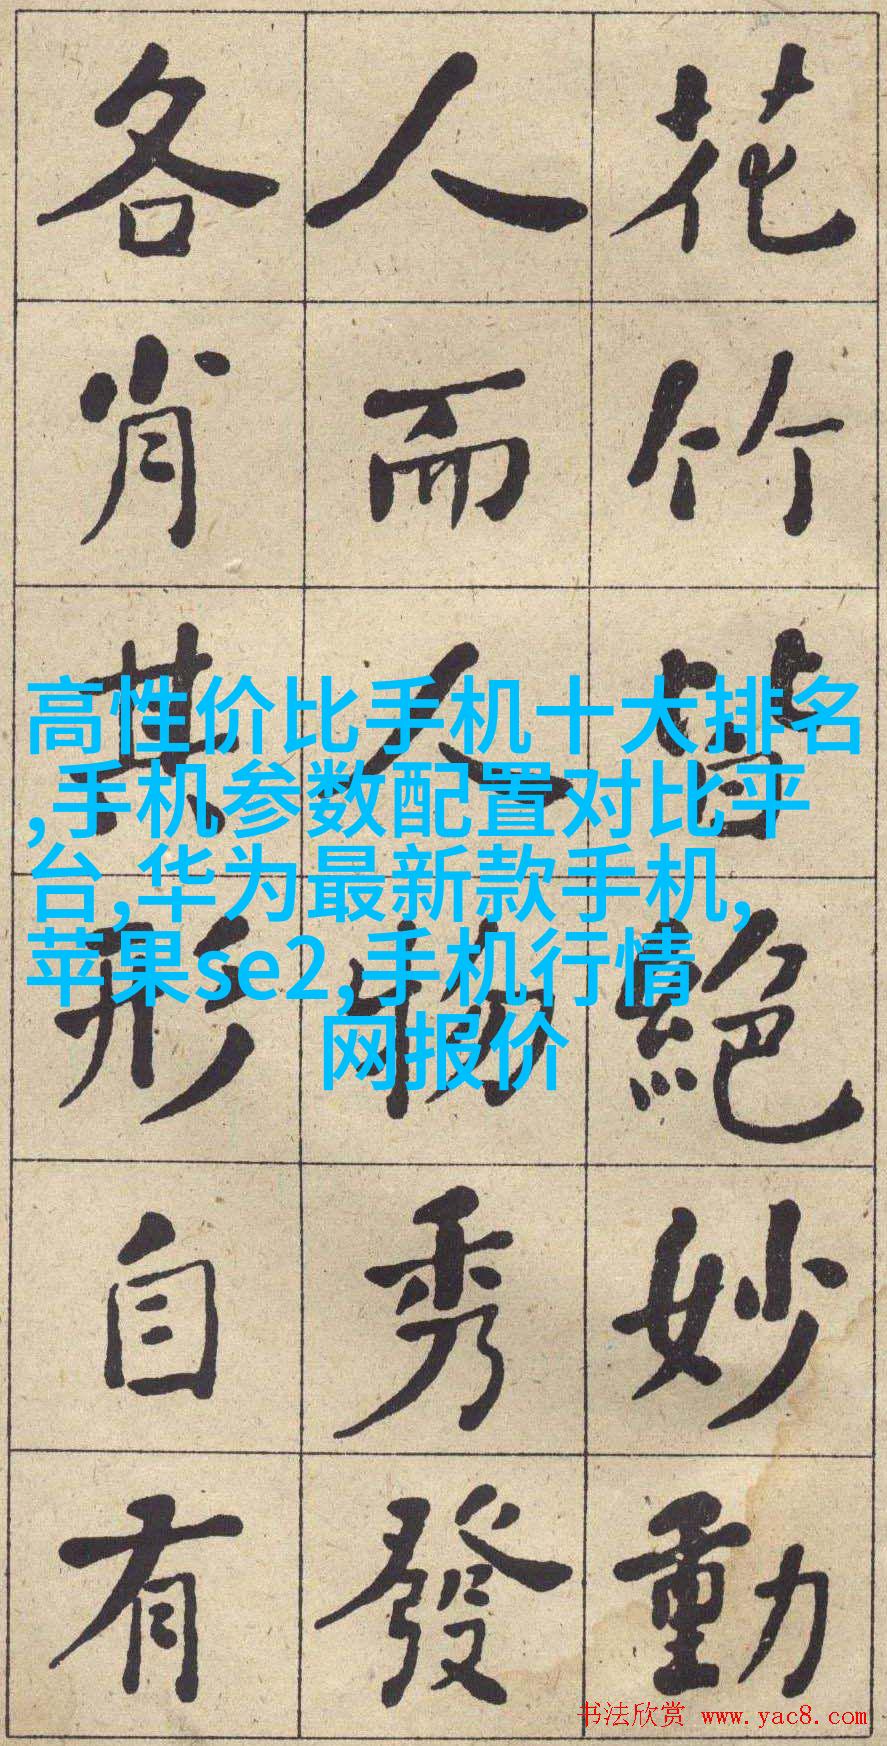 花竹皆絕妙動
人而人物秀發
各肖其形自有
高性价比手机十大排名
,手机参数配置对比平
台,华为最新款手机,
苹果se2,手机行情
网报价
书法欣赏 www.yac8.com